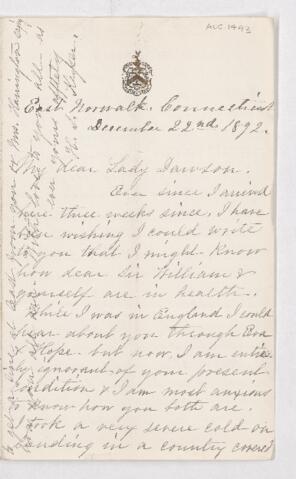 ACC 1493
East Norwalk. Connecticut
December 22nd 1892.
My dear Lady Dawson.
Ever since I arrived
here three weeks since, I have
been wishing I could write
to you that I might know
how dear Sir William &
yourself are in health.
While I was in England I could
hear about you through Eva
& Hope. but now, I am entire-
ly ignorant of your present
condition & I am most anxious
to know how you both are.
I took a very severe cold on
landing in a country covered
to get a line at least from you or Mrs. Harrington
love to you all
ever yours